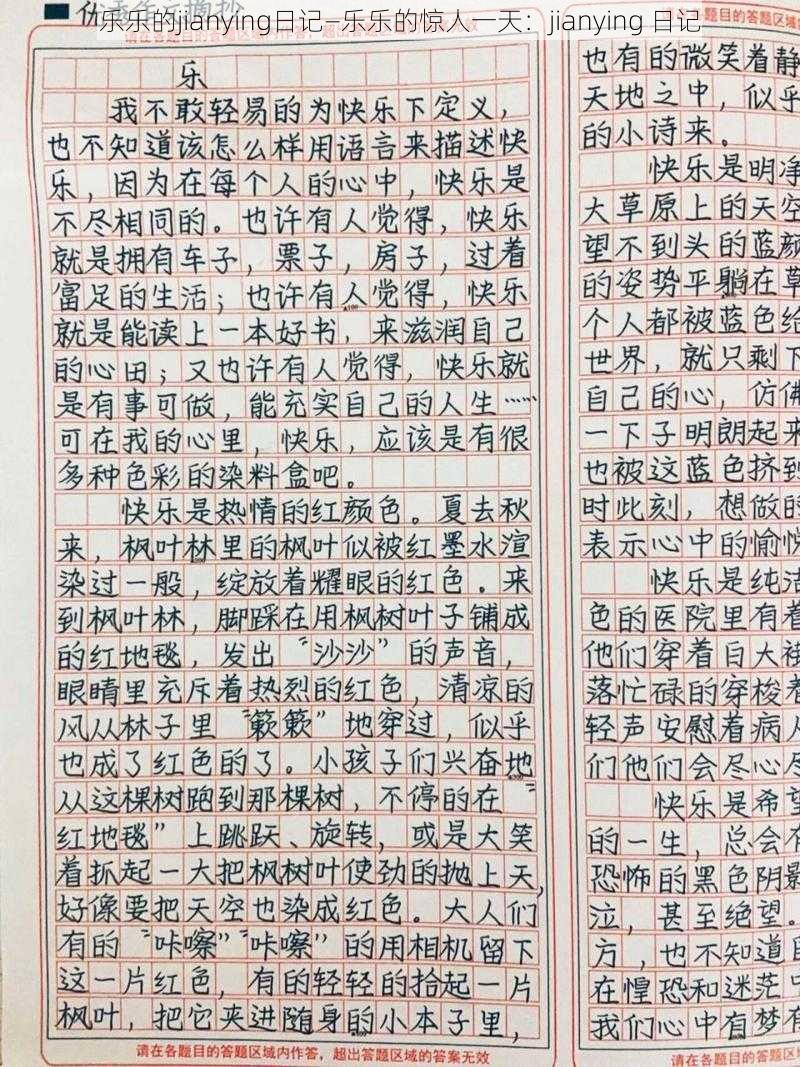 乐乐的jianying日记—乐乐的惊人一天：jianying 日记
请在各题目的答题区域内作答，超出答题区域的答案无效
乐
我不敢轻易的为快乐下定义，
也不知道该怎么样用语言来描述快
乐，因为在每个人的心中，快乐是
不尽相同的。也许有人觉得，快乐
就是拥有车子，票子，房子，过着
富足的生活；也许有人觉得，快乐
就是能读上一本好书，来滋润自己
的心田；又也许有人觉得，快乐就
是有事可做，能充实自己的人生……
可在我的心里，快乐，应该是有很
多种色彩的染料盒吧。
快乐是热情的红颜色。夏去秋
来，枫叶林里的枫叶似被红墨水渲
染过一般，绽放着耀眼的红色。来
到枫叶林，脚踩在用枫树叶子铺成
的红地毯，发出“沙沙”的声音，
眼睛里充斥着热烈的红色，清凉的
风从林子里“簌簌”地穿过，似乎
也成了红色的了。小孩子们兴奋地
从这棵树跑到那棵树，不停的在“
红地毯”上跳跃、旋转，或是大笑
着抓起一大把枫树叶使劲的抛上天，
好像要把天空也染成红色。大人们
有的“咔嚓”“咔嚓”的用相机留下
这一片红色，有的轻轻的拾起一片
枫叶，把它夹进随身的小本子里，
请在各题目的答题区域内作答，超出答题区域的答案无效
各题目的答题区域
也有的微笑着静
天地之中，似乎
的小诗来。
快乐是明净
大草原上的天空
望不到头的蓝颜
的姿势平躺在草
个人都被蓝色给
世界，就只剩下
自己的心，仿佛
一下子明朗起来
也被这蓝色挤到
时此刻，想做的
表示心中的愉悦
快乐是纯洁
色的医院里有着
他们穿着白大褂
落忙碌的穿梭着
轻声安慰着病人
们他们会尽心尽
快乐是希望
的一生，总会有
恐怖的黑色阴影
泣，甚至绝望。
方，也不知道自
在惶恐和迷茫中
我们心中有梦有
请在各题目的答题区